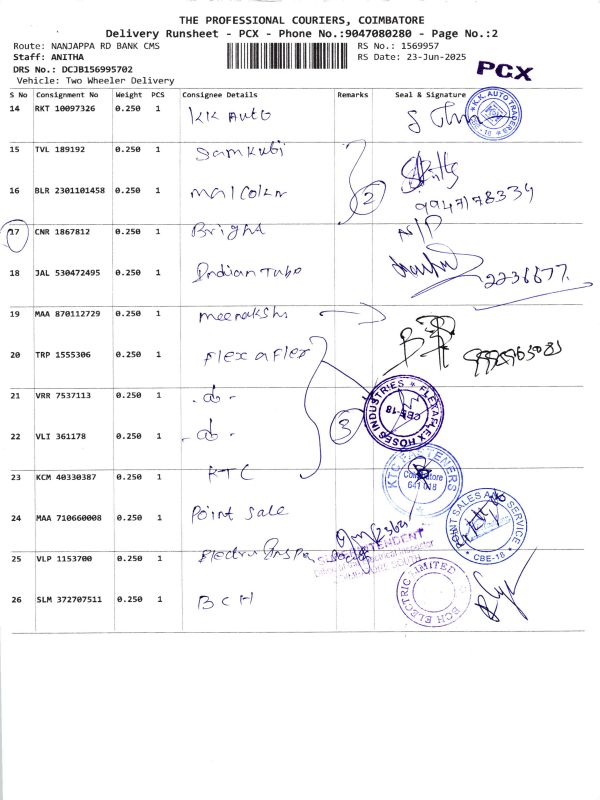 THE PROFESSIONAL COURIERS, COIMBATORE
Delivery Runsheet - PCX - Phone No.:9047080280 - Page No.:2
Route: NANJAPPA RD BANK CMS
RS No.: 1569957
Staff: ANITHA
RS Date: 23-Jun-2025
DRS No.: DCJB156995702
PCX
Vehicle: Two Wheeler Delivery
S No Consignment No Weight PCS Consignee Details Remarks Seal & Signature
14 RKT 10097326 0.250 1 KK Auto
K.K. AUTO TRADERS
15 TVL 189192 0.250 1
16 BLR 2301101458 0.250 1 malcolm 2
9947178334
17 CNR 1867812 0.250 1 Bright N/P
18 JAL 530472495 0.250 1 Indian Tube 2236677
19 MAA 870112729 0.250 1 meenakshi
20 TRP 1555306 0.250 1 Flex a Flex
21 VRR 7537113 0.250 1 - do -
FLEXAFLEX HOSES INDUSTRIES CBE-18
22 VLI 361178 0.250 1 - do - 3
23 KCM 40330387 0.250 1 KTC
KTC FASTENERS Coimbatore 641 018
24 MAA 710660008 0.250 1 Point Sale
POINT SALES AND SERVICE CBE-18
SUPERINTENDENT
25 VLP 1153700 0.250 1
26 SLM 372707511 0.250 1 BCH
BCH ELECTRIC LIMITED